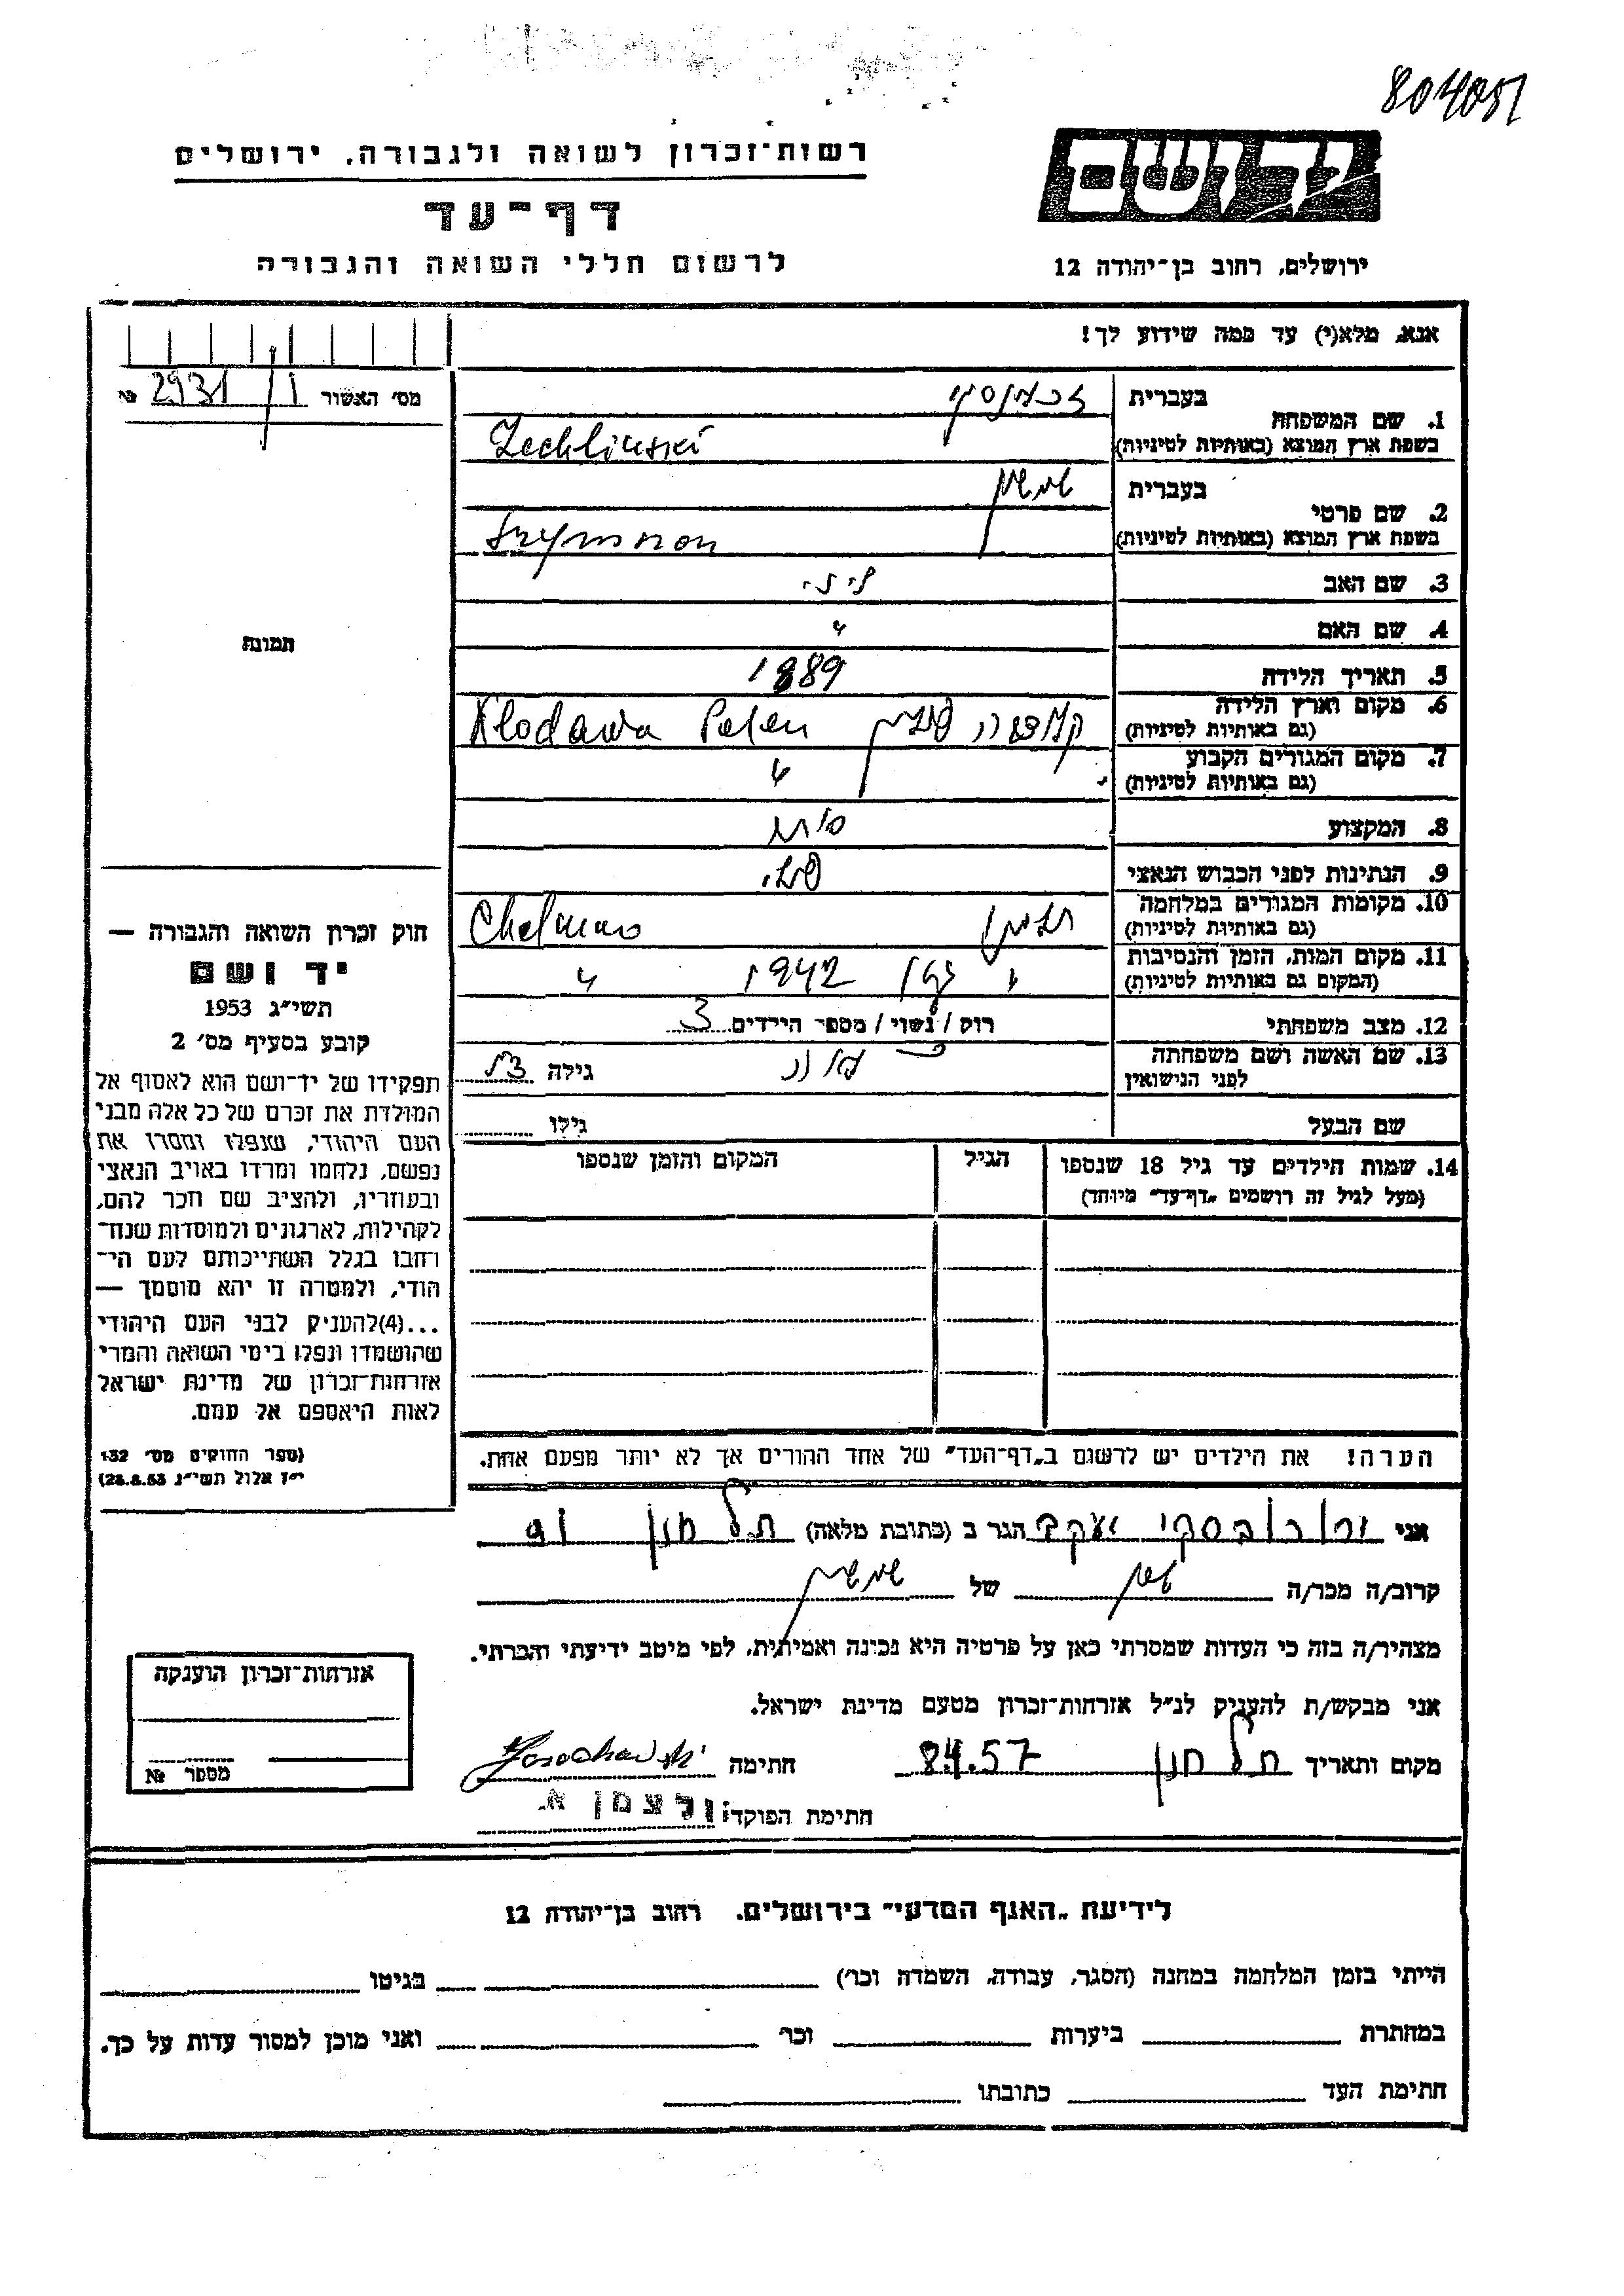 804051
רשות־זכרון לשואה ולגבורה, ירושלים
דף־עד
לרשום חללי השואה והגבורה
יד ושם
ירושלים, רחוב בן־יהודה 12
אנא, מלא(י) עד כמה שידוע לך!
מס' האשור 2931 №
1. שם המשפחה בעברית
בשפת ארץ המוצא (באותיות לטיניות) Zechlinski
2. שם פרטי בעברית שמשון
בשפת ארץ המוצא (באותיות לטיניות) Szymson
3. שם האב
4. שם האם
5. תאריך הלידה 1889
6. מקום וארץ הלידה (גם באותיות לטיניות) קלודבה פולין Klodawa Polen
7. מקום המגורים הקבוע (גם באותיות לטיניות) "
8. המקצוע סוחר
9. הנתינות לפני הכבוש הנאצי פולני
10. מקומות המגורים במלחמה (גם באותיות לטיניות) חלמנו Chelmno
11. מקום המות, הזמן והנסיבות (המקום גם באותיות לטיניות) " 1942 "
12. מצב משפחתי רווק / נשוי / מספר הילדים 3
13. שם האשה ושם משפחתה לפני הנישואין גילה
שם הבעל גילו
14. שמות הילדים עד גיל 18 שנספו (מעל לגיל זה רושמים „דף־עד" מיוחד) הגיל המקום והזמן שנספו
הערה! את הילדים יש לרשום ב„דף־העד" של אחד ההורים אך לא יותר מפעם אחת.
תמונה
חוק זכרון השואה והגבורה —
יד ושם
תשי״ג 1953
קובע בסעיף מס׳ 2
תפקידו של יד־ושם הוא לאסוף אל
המולדת את זכרם של כל אלה מבני
העם היהודי, שנפלו ומסרו את
נפשם, נלחמו ומרדו באויב הנאצי
ובעוזריו, ולהציב שם וזכר להם,
לקהילות, לארגונים ולמוסדות שנח־
רבו בגלל השתייכותם לעם הי־
הודי, ולמטרה זו יהא מוסמך —
...(4)להעניק לבני העם היהודי
שהושמדו ונפלו בימי השואה והמרי
אזרחות־זכרון של מדינת ישראל
לאות היאספם אל עמם.
(ספר החוקים מס׳ 132
י״ז אלול תשי״ג 28.8.53)
אני יעקב הגר ב (כתובת מלאה) תל חנן 91
קרוב/ה מכר/ה של שמשון
מצהיר/ה בזה כי העדות שמסרתי כאן על פרטיה היא נכונה ואמיתית, לפי מיטב ידיעתי והכרתי.
אני מבקש/ת להעניק לנ״ל אזרחות־זכרון מטעם מדינת ישראל.
מקום ותאריך תל חנן 8.4.57 חתימה
חתימת הפוקד: ולצמן א.
אזרחות־זכרון הוענקה
מספר №
לידיעת „האגף המדעי" בירושלים, רחוב בן־יהודה 12
הייתי בזמן המלחמה במחנה (הסגר, עבודה, השמדה וכו׳) בגיטו
במחתרת ביערות וכו׳ ואני מוכן למסור עדות על כך.
חתימת העד כתובתו